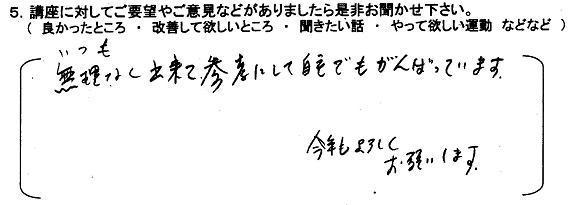 5. 講座に対してご要望やご意見などがありましたら是非お聞かせ下さい。
( 良かったところ ・ 改善して欲しいところ ・ 聞きたい話 ・ やって欲しい運動 などなど )
いつも
無理なく出来て参考にして自宅でもがんばっています。
今年もよろしく
お願いします。